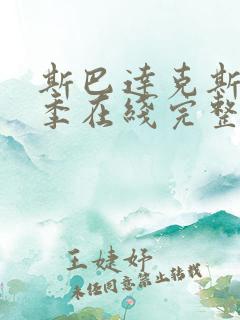 斯巴达克斯
季在线完整
王婕妤
未经同意禁止转载